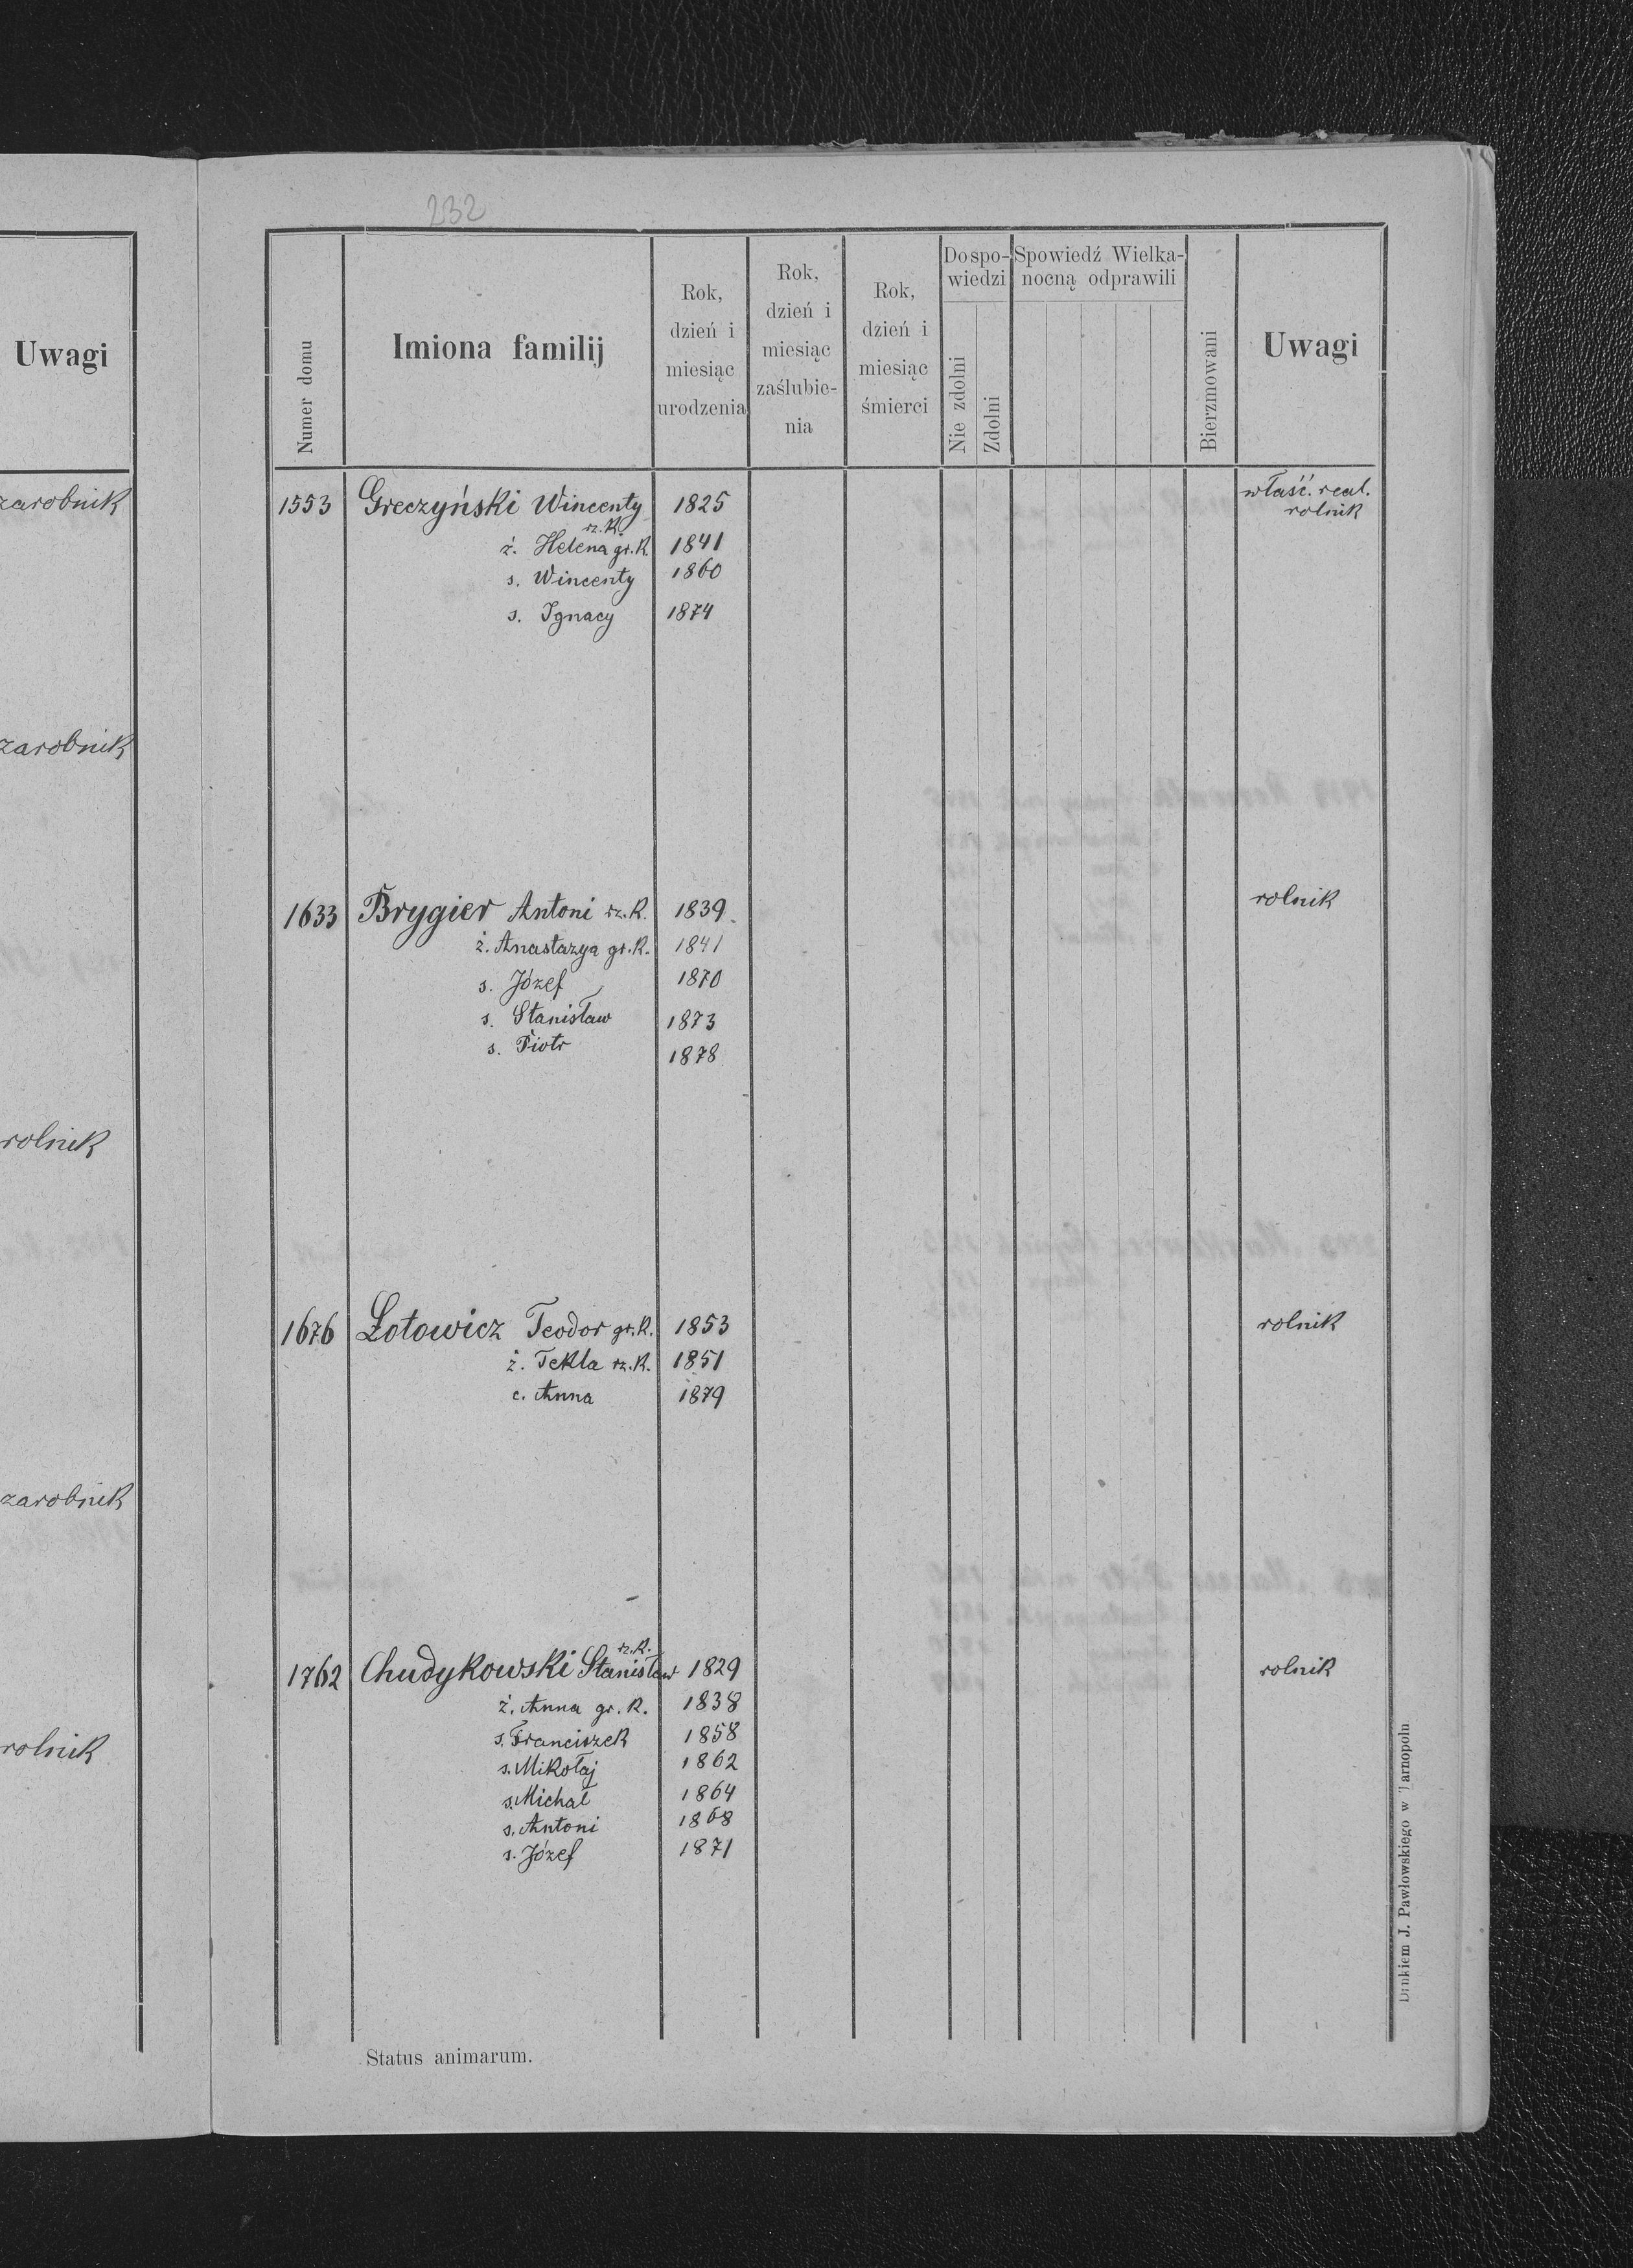 232
Uwagi
zarobnik
zarobnik
rolnik
zarobnik
rolnik
Numer domu
Imiona familij
Rok, dzień i miesiąc urodzenia
Rok, dzień i miesiąc zaślubie-nia
Rok, dzień i miesiąc śmierci
Do spo-wiedzi
Nie zdolni
Zdolni
Spowiedź Wielka-nocną odprawili
Bierzmowani
Uwagi
1553 Greczyński Wincenty rz.k. 1825 właść. real. rolnik
ż. Helena gr.k. 1841
s. Wincenty 1860
s. Ignacy 1874
1633 Brygier Antoni rz.k. 1839 rolnik
ż. Anastazya gr.k. 1841
s. Józef 1870
s. Stanisław 1873
s. Piotr 1878
1676 Łotowicz Teodor gr.k. 1853 rolnik
ż. Tekla rz.k. 1851
c. Anna 1879
1762 Chudykowski Stanisław rz.k. 1829 rolnik
ż. Anna gr.k. 1838
s. Franciszek 1858
s. Mikołaj 1862
s. Michał 1864
s. Antoni 1868
s. Józef 1871
Status animarum.
Drukiem J. Pawłowskiego w Tarnopolu